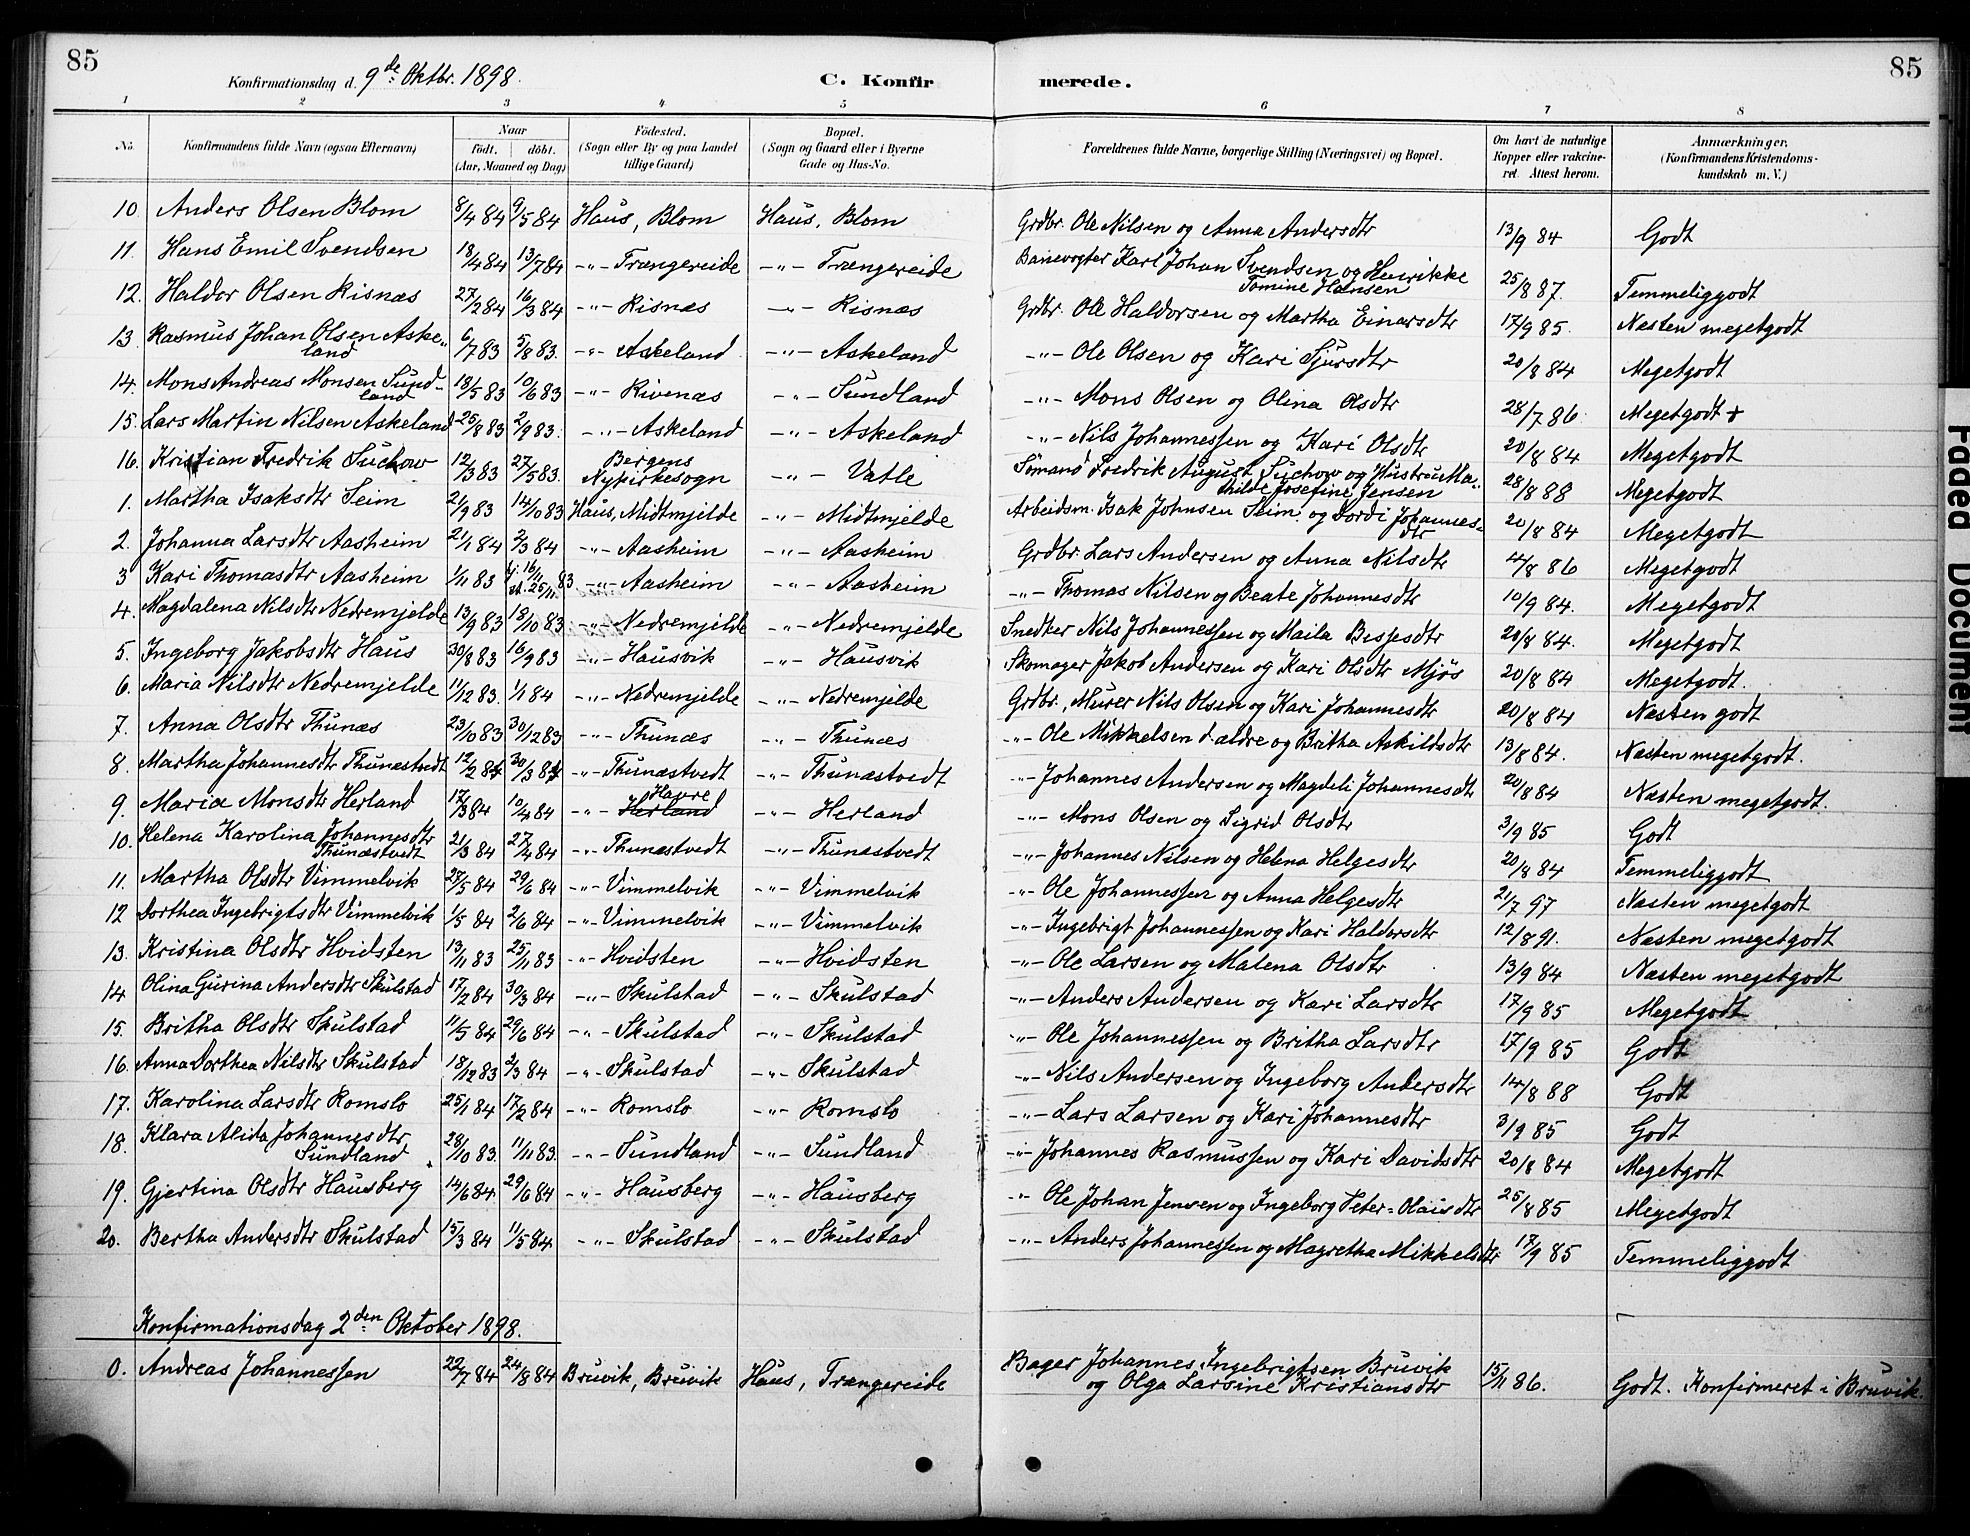 85
85
Konfirmationsdag d. 9de Oktbr. 1898.
C. Konfirmerede.
1 2 3 4 5 6 7 8
No. Konfirmandens fulde Navn (ogsaa Efternavn) Naar födt. döbt. (Aar, Maaned og Dag) Födested. (Sogn eller By og paa Landet tillige Gaard) Bopæl. (Sogn og Gaard eller i Byerne Gade og Hus-No. Forældrenes fulde Navne, borgerlige Stilling (Næringsvei) og Bopæl. Om havt de naturlige Kopper eller vakcineret. Attest herom. Anmærkninger. (Konfirmandens Kristendomskundskab m. V.)
10. Anders Olsen Blom 8/4 84 9/5 84 Haus, Blom Haus, Blom Grdbr. Ole Nilsen og Anna Andersdtr 13/9 84 Godt
11. Hans Emil Svendsen 18/4 84 13/7 84 -"- Trængereide -"- Trængereide Banevogter Karl Johan Svendsen og Henrikke Tomine Hansen 25/8 87. Temmeliggodt
12. Haldor Olsen Risnæs 27/2 84 16/3 84 -"- Risnæs -"- Risnæs Grdbr. Ole Haldorsen og Martha Einarsdtr 17/9 85. Næsten megetgodt
13. Rasmus Johan Olsen Askeland 6/7 83 5/8 83. -"- Askeland -"- Askeland -"- Ole Olsen og Kari Sjursdtr 20/8 84 Megetgodt
14. Mons Andreas Monsen Sundland 18/5 83 10/6 83 -"- Rivenæs -"- Sundland -"- Mons Olsen og Olina Olsdtr 28/7 86. Megetgodt +
15. Lars Martin Nilsen Askeland 25/8 83 2/9 83. -"- Askeland -"- Askeland -"- Nils Johannessen og Kari Olsdtr 20/8 84 Megetgodt
16. Kristian Fredrik Suchow 12/3 83 27/5 83. Bergens Nykirkesogn -"- Vatle Sömand Fredrik August Suchow og Hustru Mathilde Josefine Jensen 28/8 88 Megetgodt
1. Martha Isaksdtr Seim 21/9 83 14/10 83 Haus, Midtmjelde -"- Midtmjelde Arbeidsm. Isak Johnsen Seim og Dordi Johannesdtr 20/8 84 Megetgodt
2. Johanna Larsdtr Aasheim 21/1 84 2/3 84 -"- Aasheim -"- Aasheim Grdbr. Lars Andersen og Anna Nilsdtr 4/8 86 Megetgodt
3 Kari Thomasdtr Aasheim 1/11 83 16/11 25/11 83 -"- Aasheim -"- Aasheim -"- Thomas Nilsen og Beate Johannesdtr 10/9 84. Megetgodt
4. Magdalena Nilsdtr Nedremjelde 13/9 83 18/10 83 -"- Nedremjelde -"- Nedremjelde Snedker Nils Johannessen og Maila Bessesdtr 20/8 84. Megetgodt
5. Ingeborg Jakobsdtr Haus 30/8 83 16/9 83 -"- Hausvik -"- Hausvik Skomager Jakob Andersen og Kari Olsdtr Mjös 20/8 84 Megetgodt.
6. Maria Nilsdtr Nedremjelde 11/12 83. 1/1 84 -"- Nedremjelde -"- Nedremjelde Grdbr., Murer Nils Olsen og Kari Johannesdtr 20/8 84 Næsten godt
7. Anna Olsdtr Thunæs 23/10 83 30/12 83 -"- Thunæs -"- Thunæs -"- Ole Mikkelsen d. ældre og Britha Askildsdtr 13/8 84. Næsten megetgodt.
8. Martha Johannesdtr Thunæstvedt 12/2 84 30/3 84 -"- Thunæstvedt -"- Thunæstvedt -"- Johannes Andersen og Magdeli Johannesdtr 20/8 84 Næsten megetgodt.
9. Maria Monsdtr Herland 17/3 84 10/4 84 -"- Herland Havre -"- Herland -"- Mons Olsen og Sigrid Olsdtr 3/9 85 Godt
10. Helena Karolina Johannesdtr Thunæstvedt 21/3 84 27/4 84 -"- Thunæstvedt -"- Thunæstvedt -"- Johannes Nilsen og Helena Helgesdtr 20/8 84 Temmeliggodt
11. Martha Olsdtr Vimmelvik 27/5 84 29/6 84 -"- Vimmelvik -"- Vimmelvik -"- Ole Johannessen og Anna Helgesdtr 21/7 97 Næsten megetgodt
12 Dorthea Ingebrigtsdtr Vimmelvik 1/5 84 2/6 84 -"- Vimmelvik -"- Vimmelvik -"- Ingebrigt Johannessen og Kari Haldorsdtr 12/8 91. Næsten megetgodt
13. Kristina Olsdtr Hvidsten 13/11 83 25/11 83 -"- Hvidsten -"- Hvidsten -"- Ole Larsen og Malena Olsdtr 13/9 84 Næsten megetgodt
14 Olina Gurina Andersdtr Skulstad 17/2 84 30/3 84 -"- Skulstad -"- Skulstad -"- Anders Andersen og Kari Larsdtr 17/9 85 Megetgodt
15. Britha Olsdtr Skulstad 11/5 84 29/6 84 -"- Skulstad -"- Skulstad -"- Ole Johannessen og Britha Larsdtr 17/9 85 Godt
16. Anna Dorthea Nilsdtr Skulstad 18/12 83 2/3 84 -"- Skulstad -"- Skulstad -"- Nils Andersen og Ingeborg Andersdtr 14/8 88 Godt
17. Karolina Larsdtr Romslo 25/1 84 17/2 84 -"- Romslo -"- Romslo -"- Lars Larsen og Kari Johannesdtr 3/9 85 Godt
18. Klara Alida Johannesdtr Sundland 28/10 83. 11/11 83. -"- Sundland -"- Sundland -"- Johannes Rasmussen og Kari Davidsdtr 20/8 84 Megetgodt
19. Gjertina Olsdtr Hausberg 14/6 84. 29/6 84 -"- Hausberg -"- Hausberg -"- Ole Johan Jensen og Ingeborg Peter-Olaisdtr 25/8 85 Megetgodt
20. Bertha Andersdtr Skulstad 15/3 84 11/5 84 -"- Skulstad -"- Skulstad -"- Anders Johannessen og Magretha Mikkelsdtr 17/9 85 Temmeliggodt
Konfirmationsdag 2den Oktober 1898.
0. Andreas Johannessen 22/7 84 24/8 84 Bruvik, Bruvik Haus, Trængereide Bager Johannes Ingebrigtsen Bruvik og Olga Larsine Kristiansdtr 15/11 86. Godt. Konfirmeret i Bruvik.
Faded Document